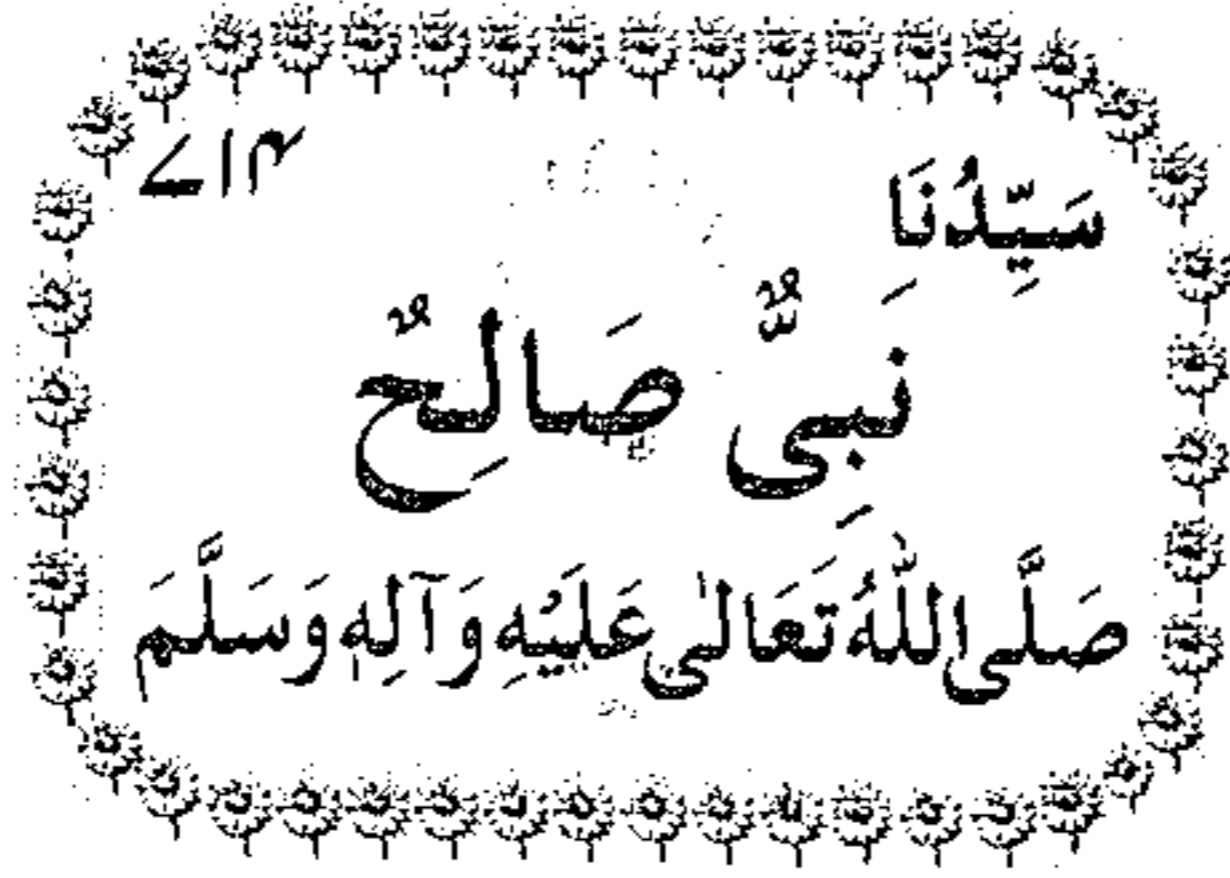 ۷۱۴
سَيِّدُنَا
نَبِىٌّ صَالِحٌ
صَلَّى اللّٰهُ تَعَالٰى عَلَيْهِ وَآلِهٖ وَسَلَّمَ